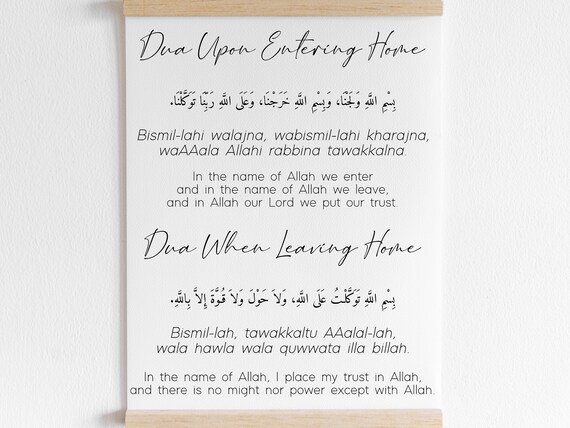 Dua Upon Entering Home
بِسْمِ اللَّهِ وَلَجْنَا، وَبِسْمِ اللَّهِ خَرَجْنَا، وَعَلَى اللَّهِ رَبِّنَا تَوَكَّلْنَا.
Bismil-lahi walajna, wabismil-lahi kharajna,
waAAala Allahi rabbina tawakkalna.
In the name of Allah we enter
and in the name of Allah we leave,
and in Allah our Lord we put our trust.
Dua When Leaving Home
بِسْمِ اللَّهِ تَوَكَّلْتُ عَلَى اللَّهِ، وَلاَ حَوْلَ وَلاَ قُوَّةَ إِلاَّ بِاللَّهِ.
Bismil-lah, tawakkaltu AAalal-lah,
wala hawla wala quwwata illa billah.
In the name of Allah, I place my trust in Allah,
and there is no might nor power except with Allah.